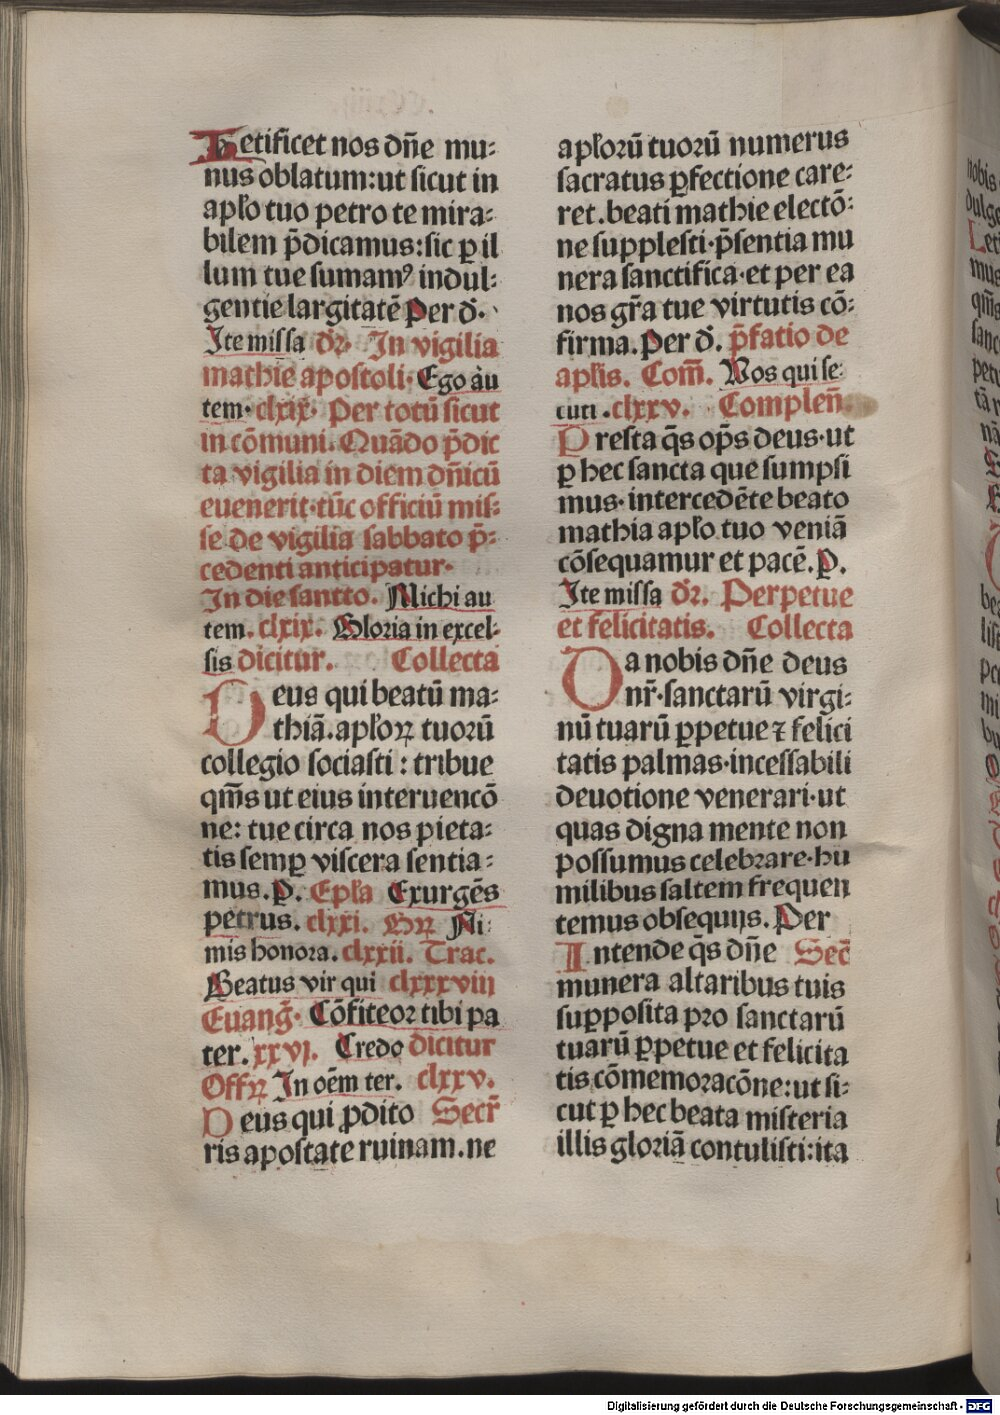 Letificet nos dn̄e mu⸗
nus oblatum: ut sicut in
apl̓o tuo petro te mira⸗
bilem p̄dicamus: sic ꝑ il
lum tue sumamꝰ indul⸗
gentie largitatē Per d̄.
Ite missa dr̄. In vigilia
mathie apostoli. Ego au
tem. clxix. Per totū sicut
in cōmuni. Quādo p̄dic
ta vigilia in diem dn̄icū
euenerit. tūc officiū mis⸗
se de vigilia sabbato p̄⸗
cedenti anticipatur.
In die sancto. Michi au
tem. clxix. Gloria in excel⸗
sis dicitur. Collecta
Deus qui beatū ma⸗
thiā. apl̓oꝝ tuorū
collegio sociasti: tribue
qm̄s ut eius interuencō
ne: tue circa nos pieta⸗
tis semꝑ viscera sentia⸗
mus. P. Epl̓a Exurgēs
petrus. clxxi. Grꝝ Ni⸗
mis honora. clxxii. Trac.
Beatus vir qui clxxxviii
Euang̓. Cōfiteor tibi pa
ter. xxvj. Credo dicitur
Offꝝ In oēm ter. clxxv.
Deus qui ꝓdito Secr̄
ris apostate ruinam. ne
apl̓orū tuorū numerus
sacratus ꝑfectione care⸗
ret. beati mathie electō⸗
ne supplesti. p̄sentia mu
nera sanctifica. et per ea
nos gr̄a tue virtutis cō⸗
firma. Per d̄. p̄fatio de
apl̓is. Com̄. Vos qui se⸗
cuti. clxxv. Complen̄.
Presta q̄s op̄s deus. ut
ꝑ hec sancta que sumpsi
mus. intercedēte beato
mathia apl̓o tuo veniā
cōsequamur et pacē. P.
Ite missa dr̄. Perpetue
et felicitatis. Collecta
Da nobis dn̄e deus
nr̄. sanctarū virgi⸗
nū tuarū ꝑpetue ⁊ felici
tatis palmas. incessabili
deuotione venerari. ut
quas digna mente non
possumus celebrare. hu
milibus saltem frequen
temus obsequijs. Per
Intende q̄s dn̄e Sec̄
munera altaribus tuis
supposita pro sanctarū
tuarū ꝑpetue et felicita
tis cōmemoracōne: ut si⸗
cut ꝑ hec beata misteria
illis gloriā contulisti: ita
Digitalisierung gefördert durch die Deutsche Forschungsgemeinschaft - DFG